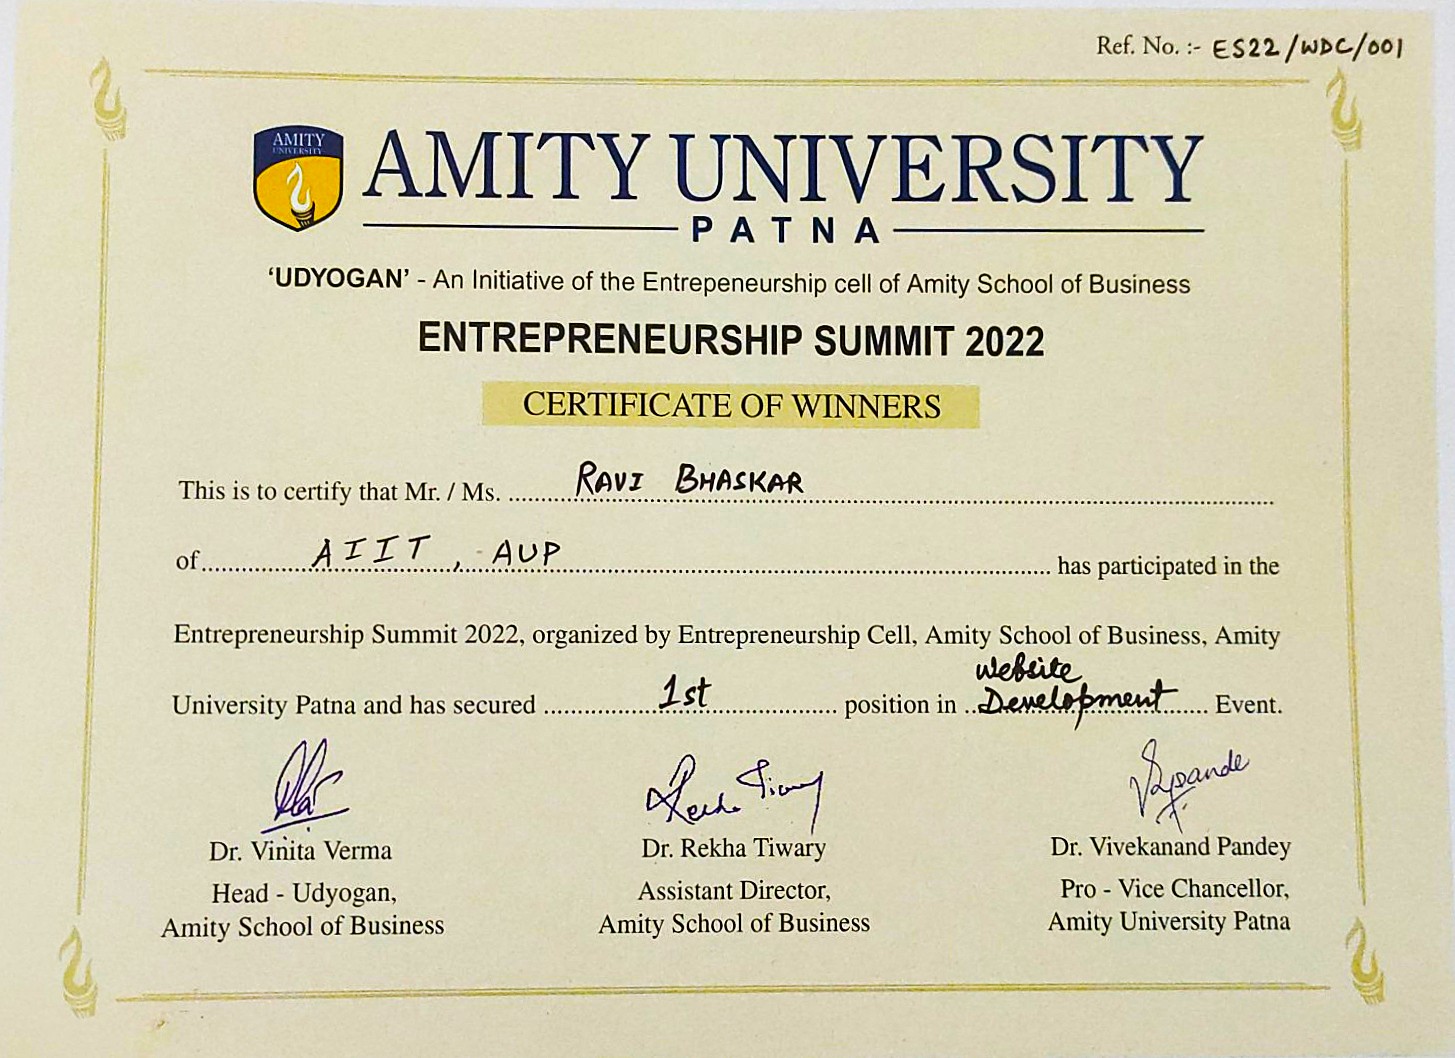 Ref. No. :- ES22/WDC/001
AMITY
UNIVERSITY
AMITY UNIVERSITY
PATNA
‘UDYOGAN’ - An Initiative of the Entrepeneurship cell of Amity School of Business
ENTREPRENEURSHIP SUMMIT 2022
CERTIFICATE OF WINNERS
This is to certify that Mr. / Ms. RAVI BHASKAR
of AIIT, AUP has participated in the
Entrepreneurship Summit 2022, organized by Entrepreneurship Cell, Amity School of Business, Amity
University Patna and has secured 1st position in Website Development Event.
Rekha Tiwary
Dr. Vinita Verma
Dr. Rekha Tiwary
Dr. Vivekanand Pandey
Head - Udyogan,
Assistant Director,
Pro - Vice Chancellor,
Amity School of Business
Amity School of Business
Amity University Patna